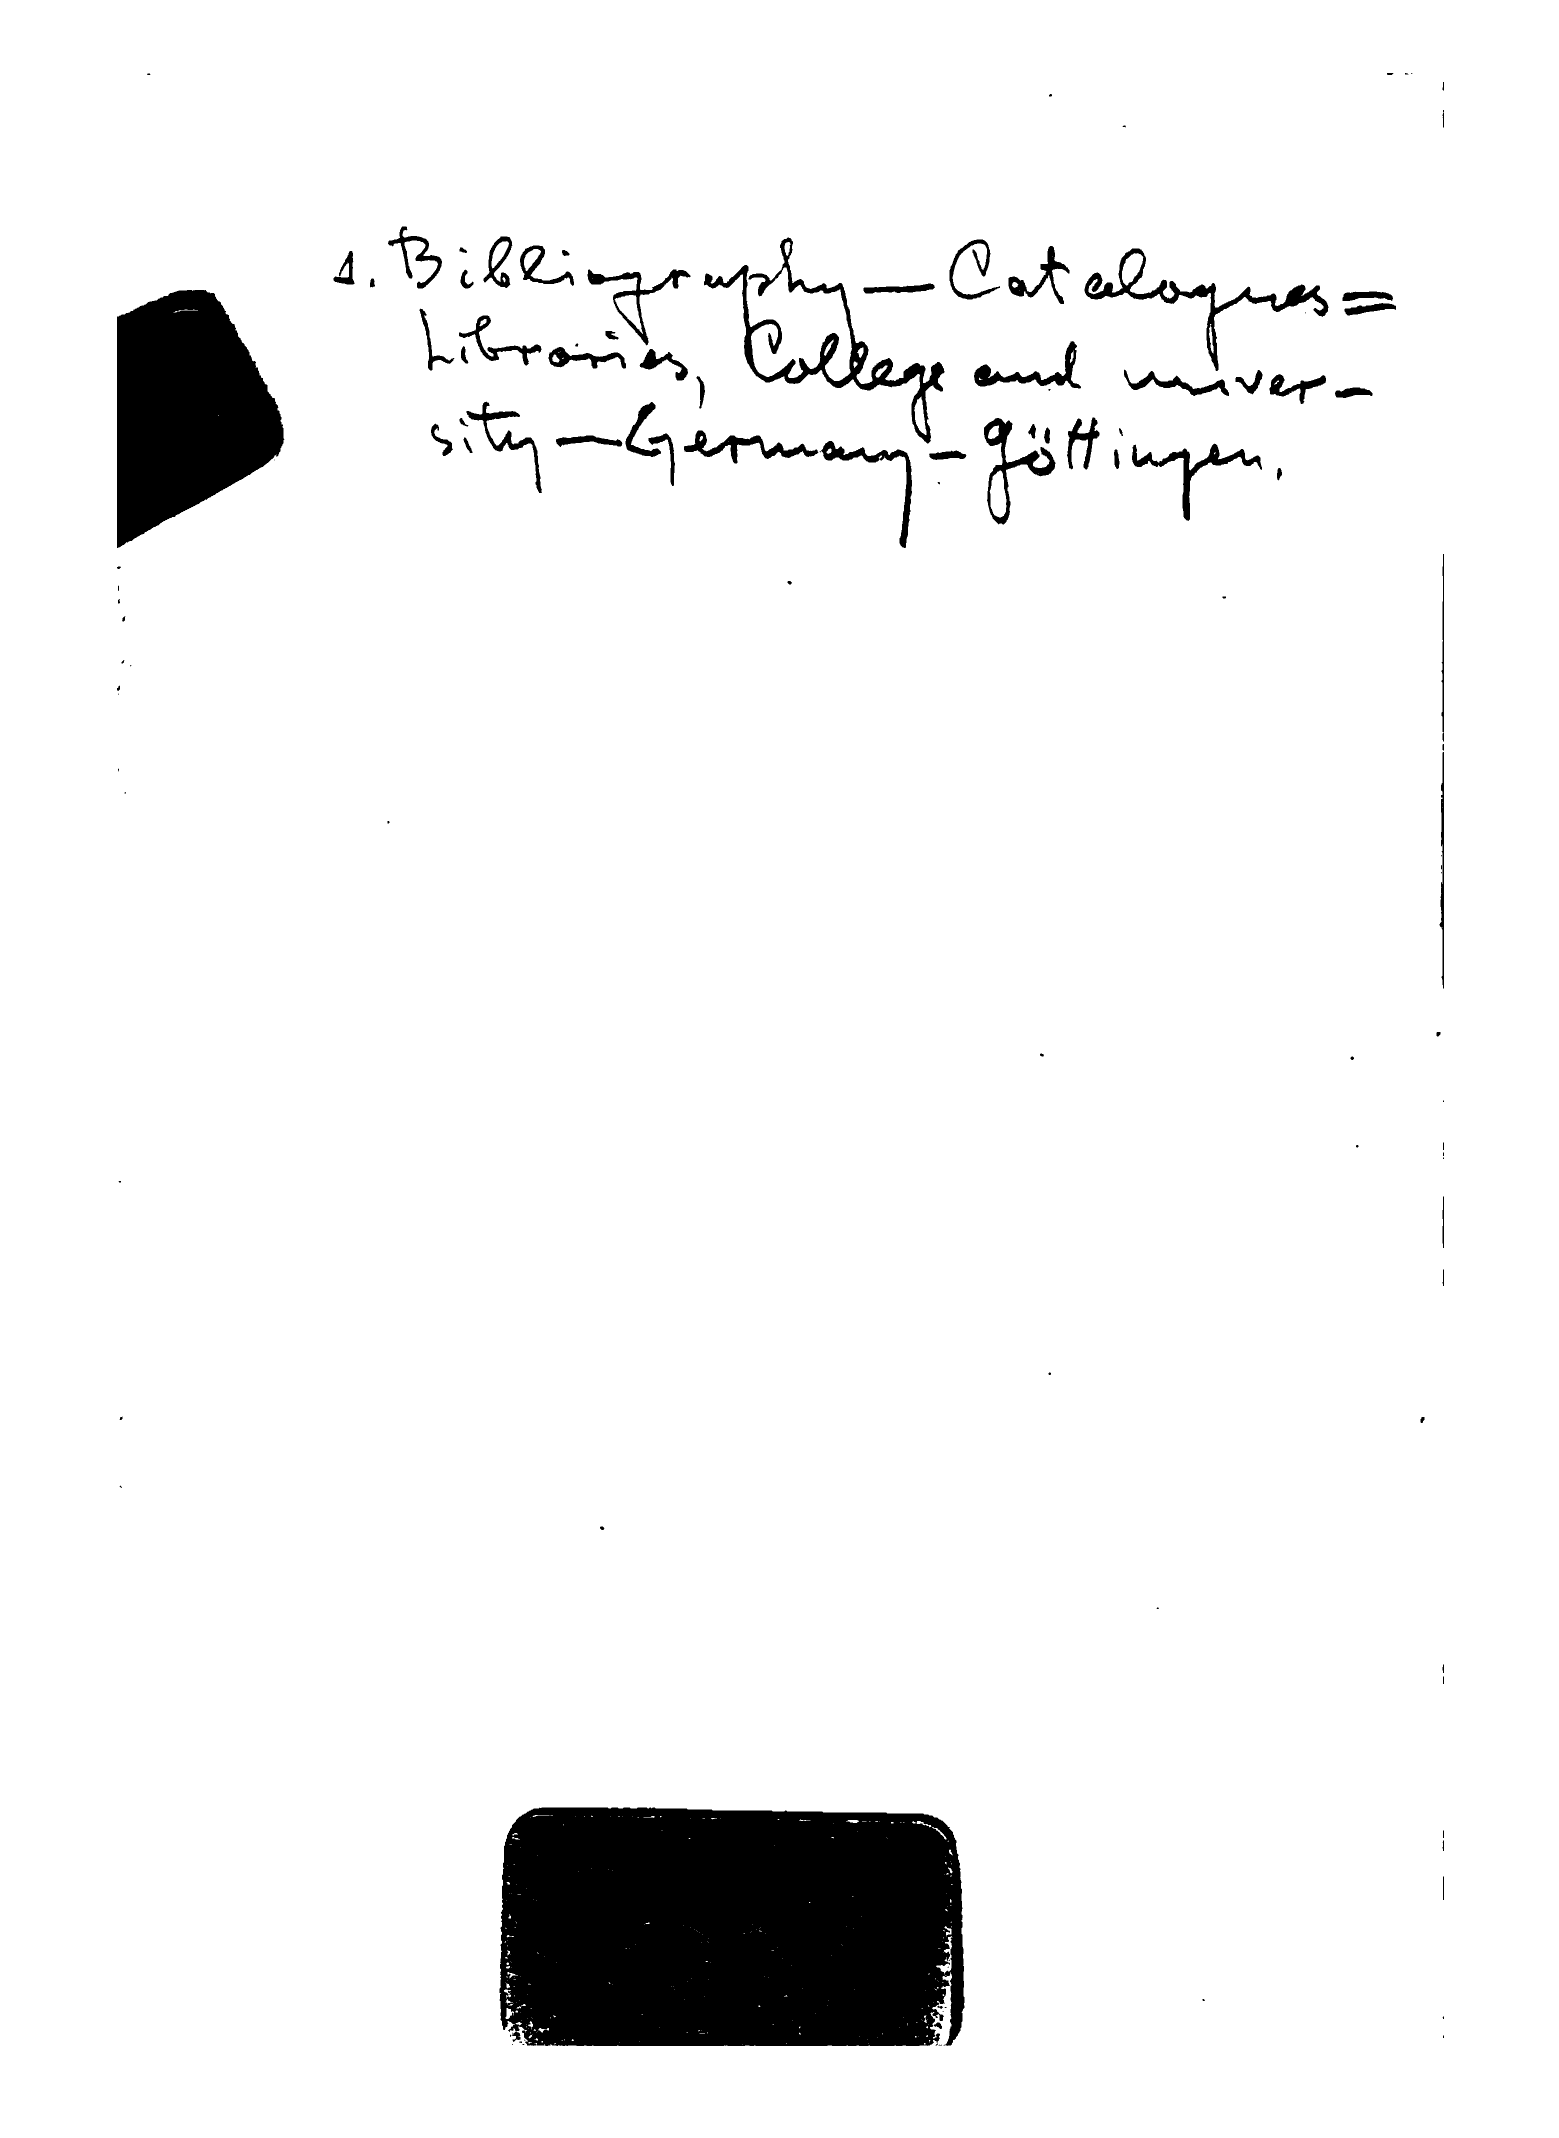 1. Bibliography — Catalogues =
Libraries, College and univer-
sity — Germany - Göttingen.